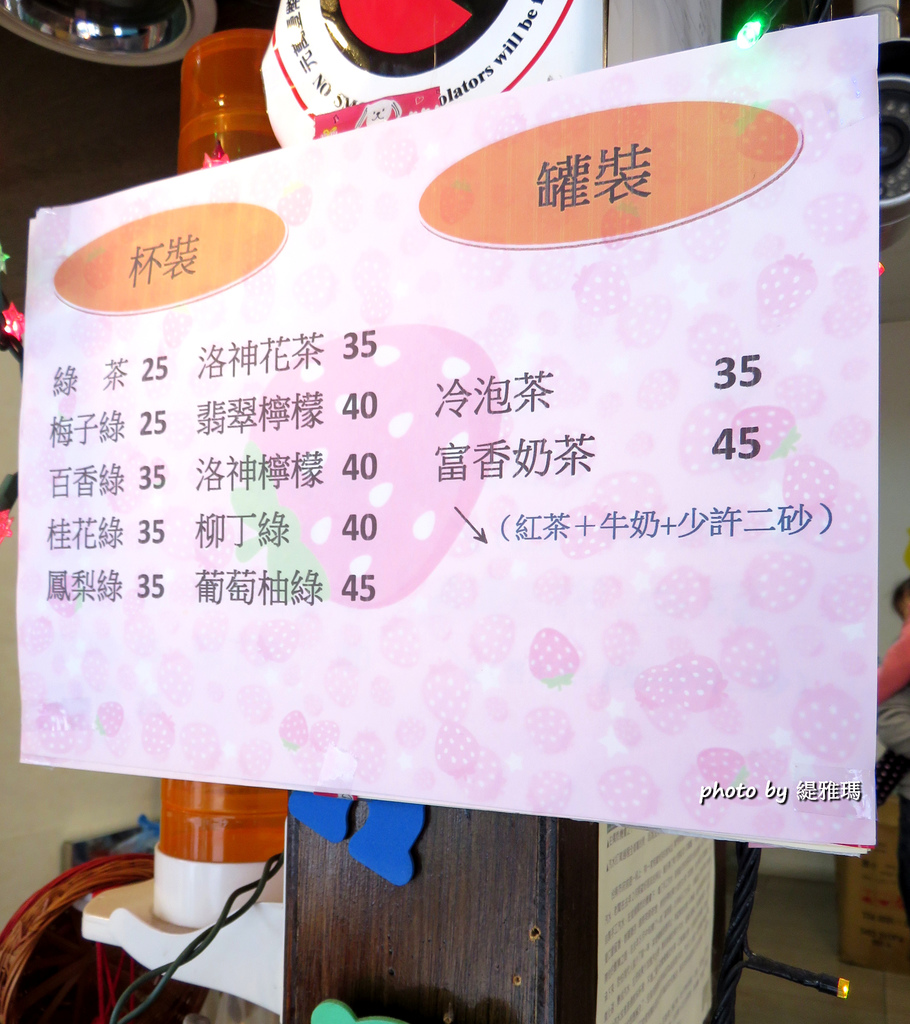 元罰
NO SM
olators will be f
罐裝
杯裝
綠 茶 25 洛神花茶 35
梅子綠 25 翡翠檸檬 40
百香綠 35 洛神檸檬 40
桂花綠 35 柳丁綠 40
鳳梨綠 35 葡萄柚綠 45
冷泡茶 35
富香奶茶 45
↘(紅茶+牛奶+少許二砂)
photo by 緹雅瑪